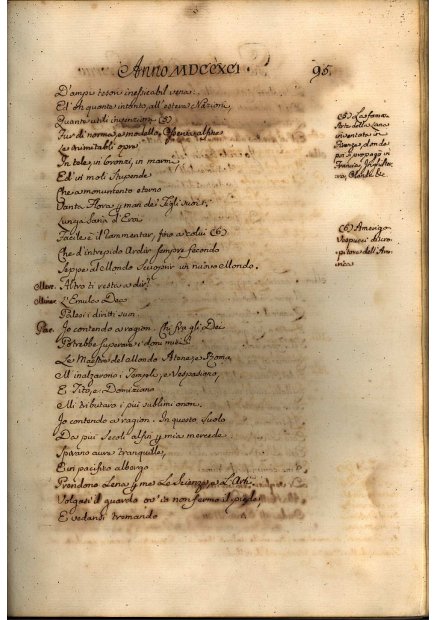 Anno MDCCXCI.
95.
D'ampi tesori inessicabil vena:
Ed in quante intanto, all'estere Nazioni,
Quante utili invenzioni (5)
Fur di norma, e modello, e
Le inimitabili opre
In tele, in bronzi, in marmi,
Ed in moli stupende
Che a monumento eterno
Vanta Flora
Lunga
Facile è il rammentar, fino a colui (6)
Che d'intrepido Ardir sempre secondo
Seppe al Mondo scuoprir un nuovo Mondo.
Altro ti resta a dir?
L'Emulo Deco
Palesi i diritti suoi.
Pac. Io contendo a ragion. Chi fra gli Dei
Potrebbe superare i doni miei?
Le Maestre del Mondo Atene, e Roma,
M'inalzarono i Templi, e Vespasiano,
E Tito, e Domiziano
Mi tributaro i più sublimi onori.
Io contendo a ragion. In questo suolo
Da più secoli alfin p mia mercede
Spirano aure tranquille,
E in pacifico albergo
Prendono Lena p me Le Scienze, e L'Arti.
Volgasi il guardo ov'io non fermo il piede,
E vedrassi tremando
(5) La famosa
Arte della Lana
inventata in
Firenze, donde
poi si propagò in
Francia, Inghilter-
ra, Olanda &c.
(6) Amerigo
Vespucci
pitore dell'Ame-
rica